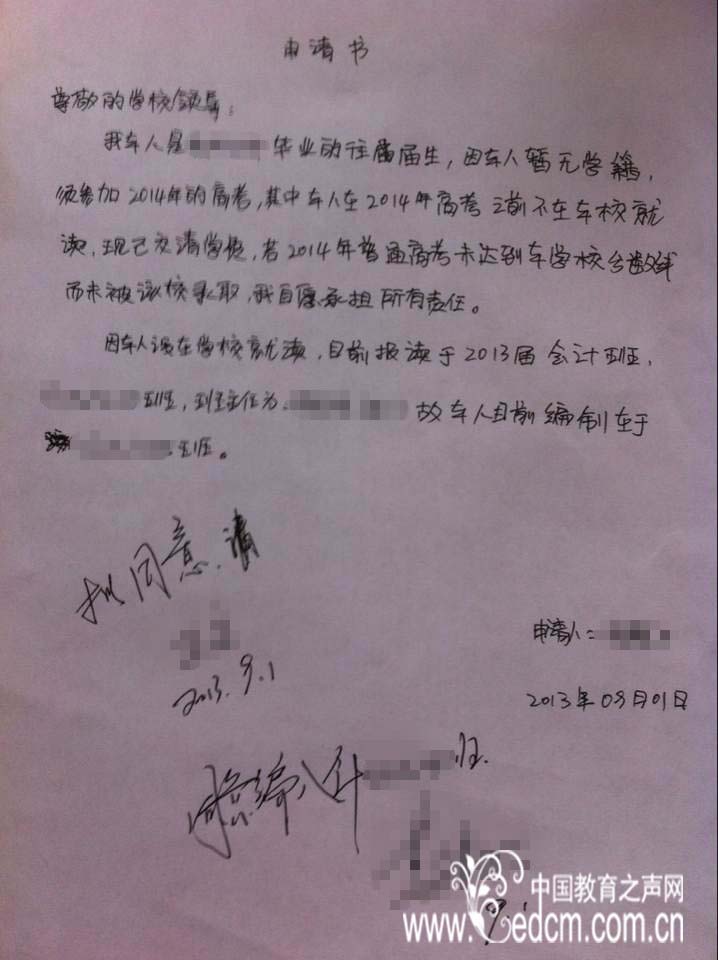 申请书
尊敬的学校领导：
我本人是 毕业的往届届生，因本人暂无学籍，
须参加2014年的高考，其中本人在2014年高考之前不在本校就
读，现已交清学费，若2014年普通高考未达到本学校分数线
而未被该校录取，我自愿承担所有责任。
因本人须在学校就读，目前报读于2013届会计班，
班，班主任为 故本人目前编制在于
班。
拟同意，请
2013.9.1
申请人：
2013年09月01日
同意编入会计 班.
9.1
中国教育之声网
www.edcm.com.cn